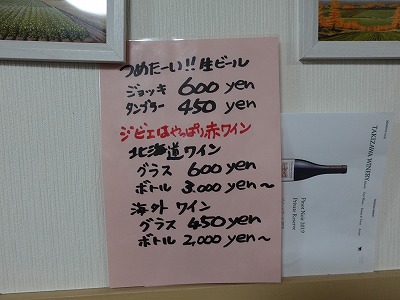 つめたーい!!生ビール
ジョッキ 600 yen
タンブラー 450 yen
ジビエはやっぱり赤ワイン
北海道ワイン
グラス 600 yen
ボトル 3,000 yen〜
海外ワイン
グラス 450 yen
ボトル 2,000 yen〜
TAKIZAWA WINERY
Pinot Noir 2019
Private Reserve